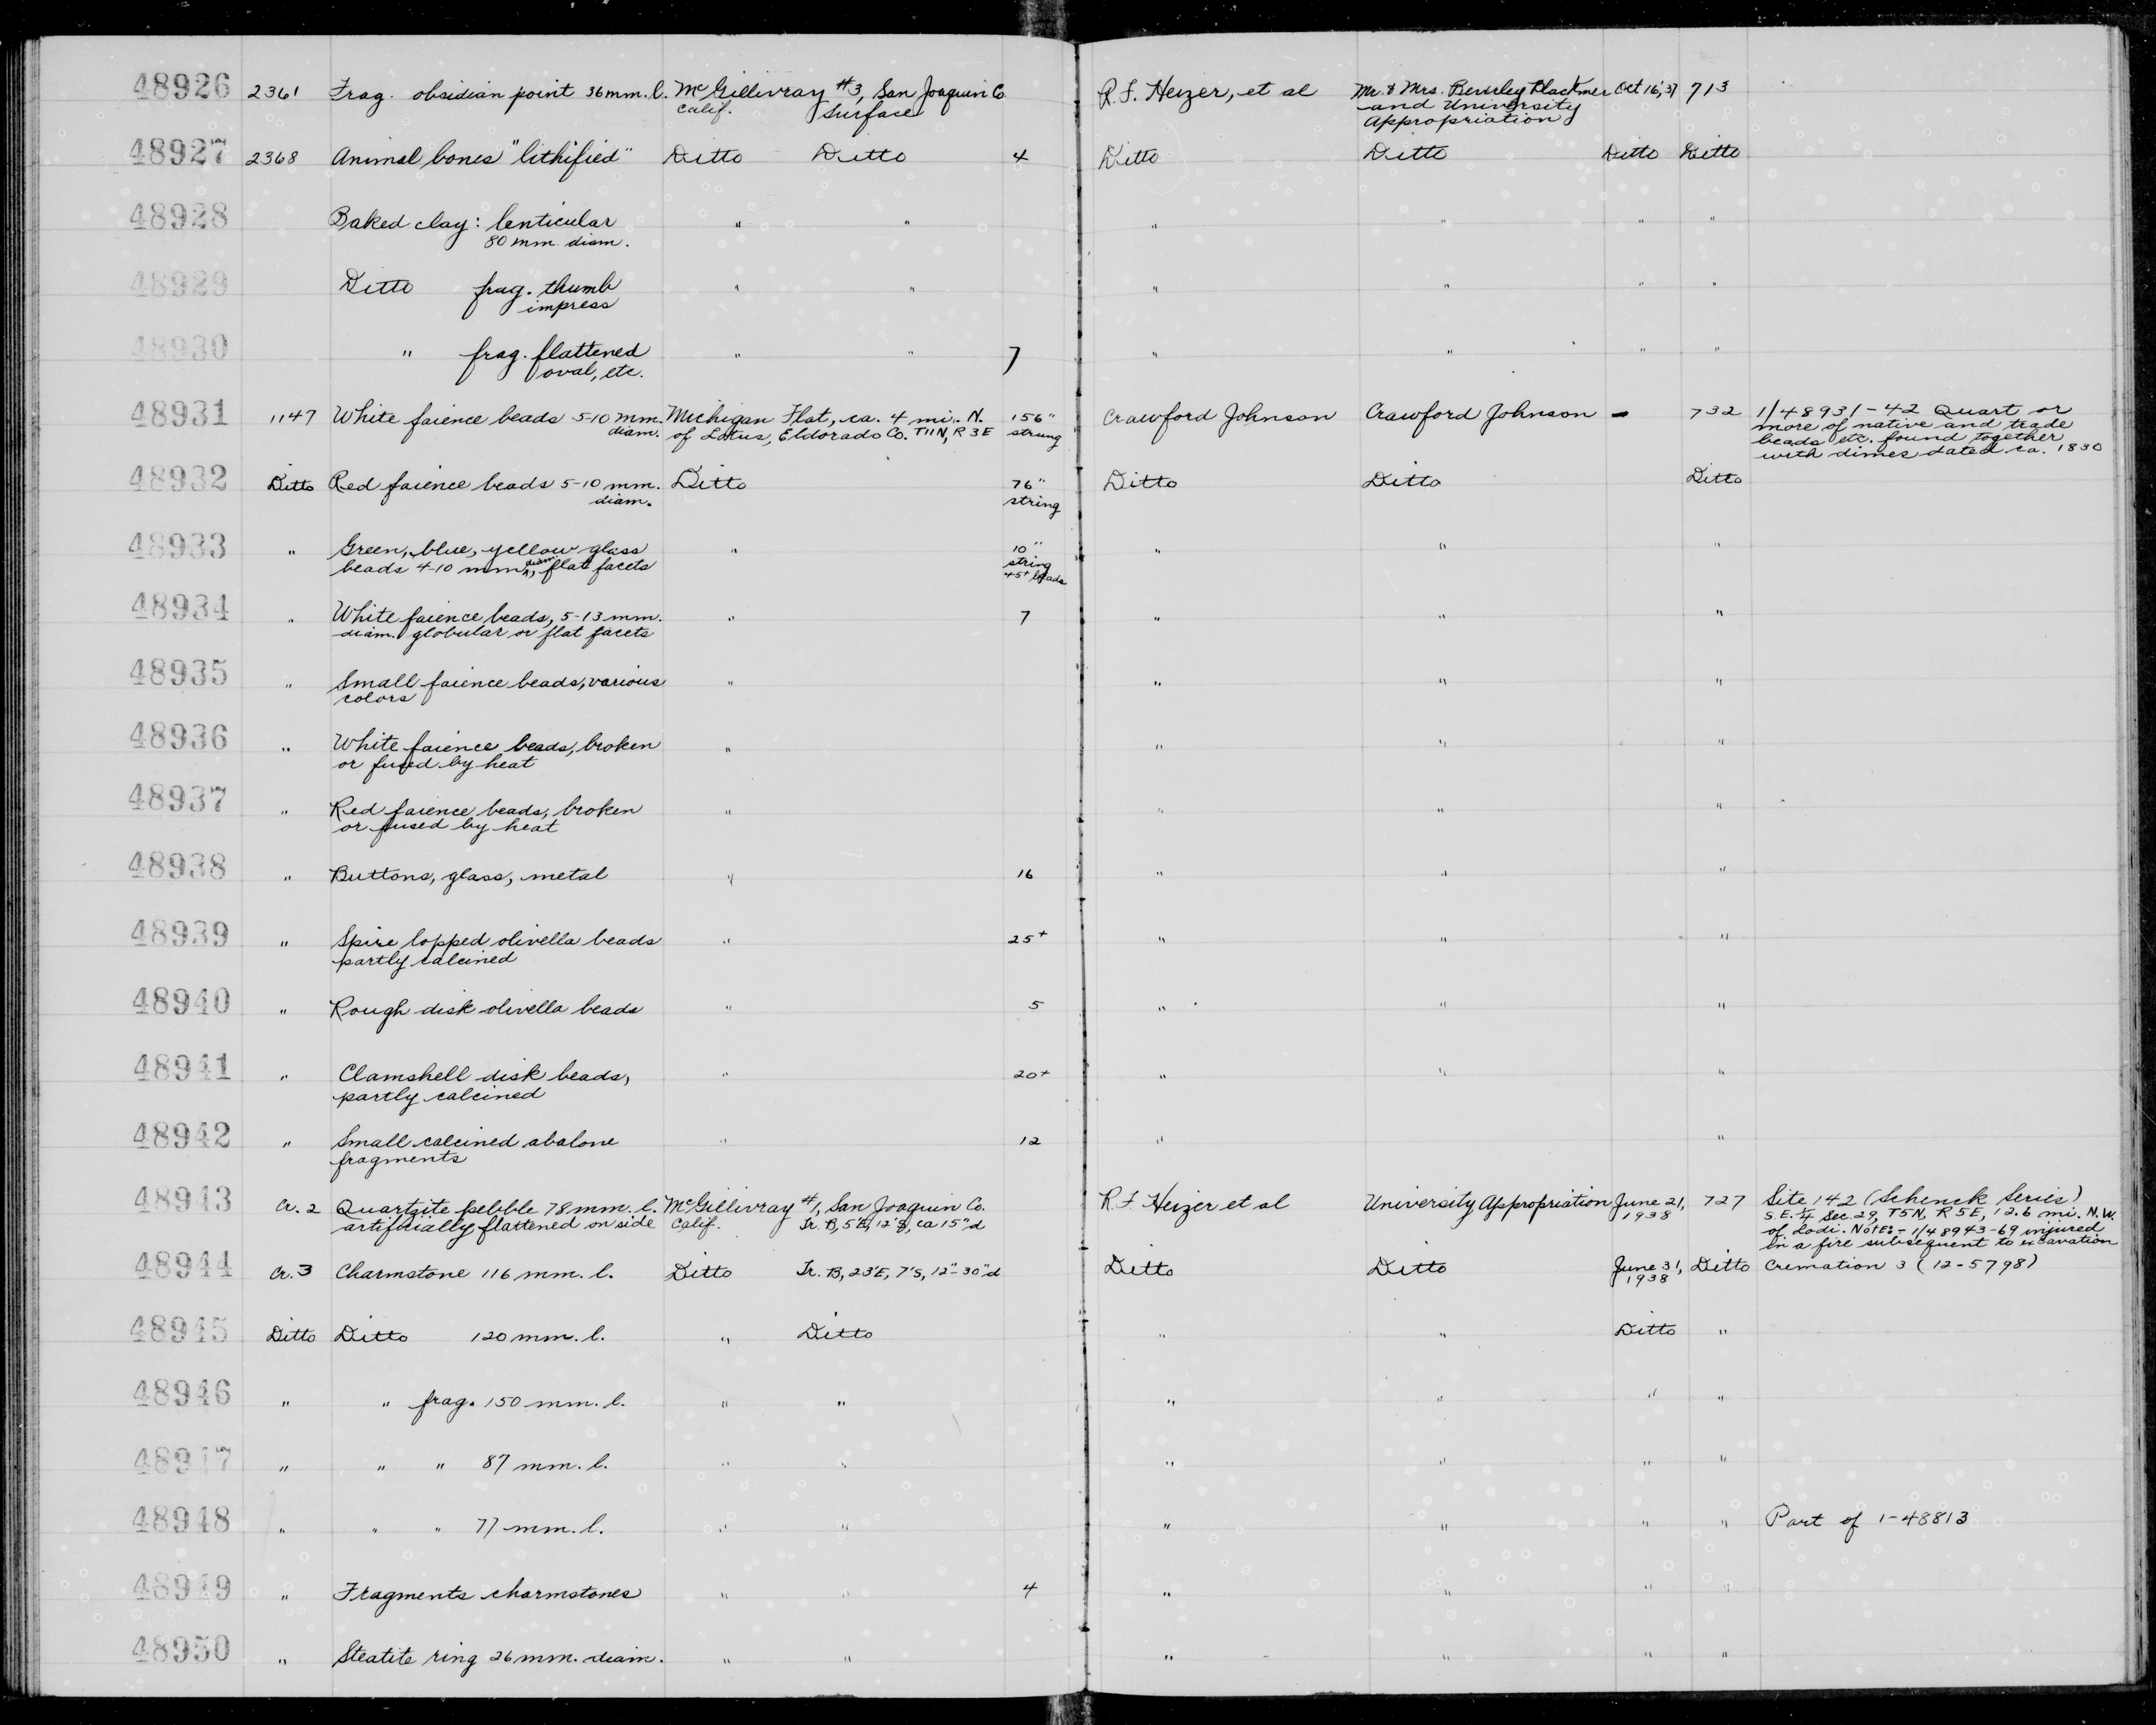 48926 2361 Frag. obsidian point 36 mm. l. McGillivray #3, San Joaquin Co R. F. Heizer, et al Mr. & Mrs. Beverley Blackmer Oct 16, 37 713
Calif. Surface and University
Appropriation
48927 2368 Animal bones "lithified" Ditto Ditto 4 Ditto Ditto Ditto Ditto
48928 Baked clay: lenticular " " " " " "
80 mm. diam.
48929 Ditto frag. thumb " " " " " "
impress
48930 " frag. flattened " " 7 " " " "
oval, etc.
48931 1147 White faience beads 5-10 mm. Michigan Flat, ca. 4 mi. N. 156" Crawford Johnson Crawford Johnson - 732 1/48931-42 Quart or
diam. of Lotus, Eldorado Co. T11N, R3E strung more of native and trade
beads etc. found together
with dimes dated ca. 1830
48932 Ditto Red faience beads 5-10 mm. Ditto 76" Ditto Ditto Ditto
diam. string
48933 " Green, blue, yellow glass " 10" " " "
beads 4-10 mm diam., flat facets string
45+ beads
48934 " White faience beads, 5-13 mm. " 7 " " "
diam. globular or flat facets
48935 " Small faience beads, various " " " "
colors
48936 " White faience beads, broken " " " "
or fused by heat
48937 " Red faience beads, broken " " " "
or fused by heat
48938 " Buttons, glass, metal " 16 " " "
48939 " Spire lopped olivella beads " 25+ " " "
partly calcined
48940 " Rough disk olivella beads " 5 " " "
48941 " Clamshell disk beads, " 20+ " " "
partly calcined
48942 " Small calcined abalone " 12 " "
fragments
48943 Cr. 2 Quartzite pebble 78 mm. l. McGillivray #1, San Joaquin Co. R. F. Heizer et al University Appropriation June 21, 727 Site 142 (Schenck Series)
artificially flattened on side Calif. Tr. B, 5'E, 12'S, ca 15"d 1938 S.E. 1/4 Sec. 29, T5N, R5E, 12.6 mi. N.W.
of Lodi. Note:- 1/48943-69 injured
in a fire subsequent to excavation
48944 Cr. 3 Charmstone 116 mm. l. Ditto Tr. B, 23'E, 7'S, 12"-30"d Ditto Ditto June 31, Ditto Cremation 3 (12-5798)
1938
48945 Ditto Ditto 120 mm. l. " Ditto " " Ditto "
48946 " " frag. 150 mm. l. " " " " " "
48947 " " " 87 mm. l. " " " " " "
48948 " " " 77 mm. l. " " " " " " Part of 1-48813
48949 " Fragments charmstones " " 4 " " " "
48950 " Steatite ring 26 mm. diam. " " " " " "